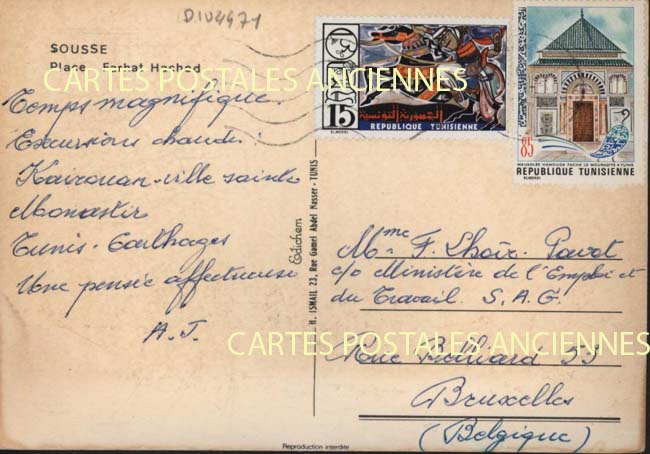 D104471
SOUSSE
Place Farhat Hached
CARTES POSTALES ANCIENNES
Temps magnifique.
Excursions chaudes :
Kairouan - ville sainte
Monastir
Tunis - Carthages
Une pensée affectueuse
A.J.
Edichem
H. ISMAIL 23, Rue Gamel Abdel Nasser - TUNIS
15
الجمهورية التونسية
REPUBLIQUE TUNISIENNE
ELMEKKI
85
MAUSOLEE HAMOUDA PACHA LE MOURADITE - TUNIS
REPUBLIQUE TUNISIENNE
ELMEKKI
Mme F. Lhoir - Pavot
c/o Ministère de l'Emploi et
du Travail. S.A.G.
CARTES POSTALES ANCIENNES
Rue Belliard 53
Bruxelles
(Belgique)
Reproduction interdite